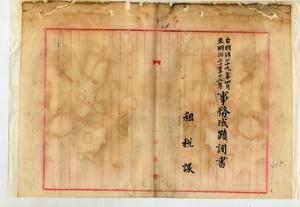 自明治二十九年四月
至明治三十年三月
事務成蹟調書
租税課